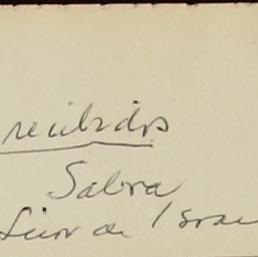 recibidos
Sabra
Licor de Israe